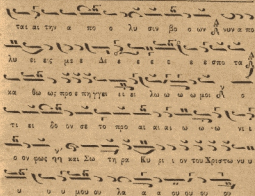 ται αι την α πο λυ σιν βο ω ων νυν α πο
λυ ει εις με ε Δε ε ε ε ε σπο τα
κα θω ως προ ε πη γγει ι ει λω ω ω μοι
τι ει δο ον σε το προ αι αι αι ω ω ω νι
ο ον φως και Σω τη ρα Κυ ρι ι ον του Χριστω νυ υ
ου μου ου λα α α ου ου ου ου